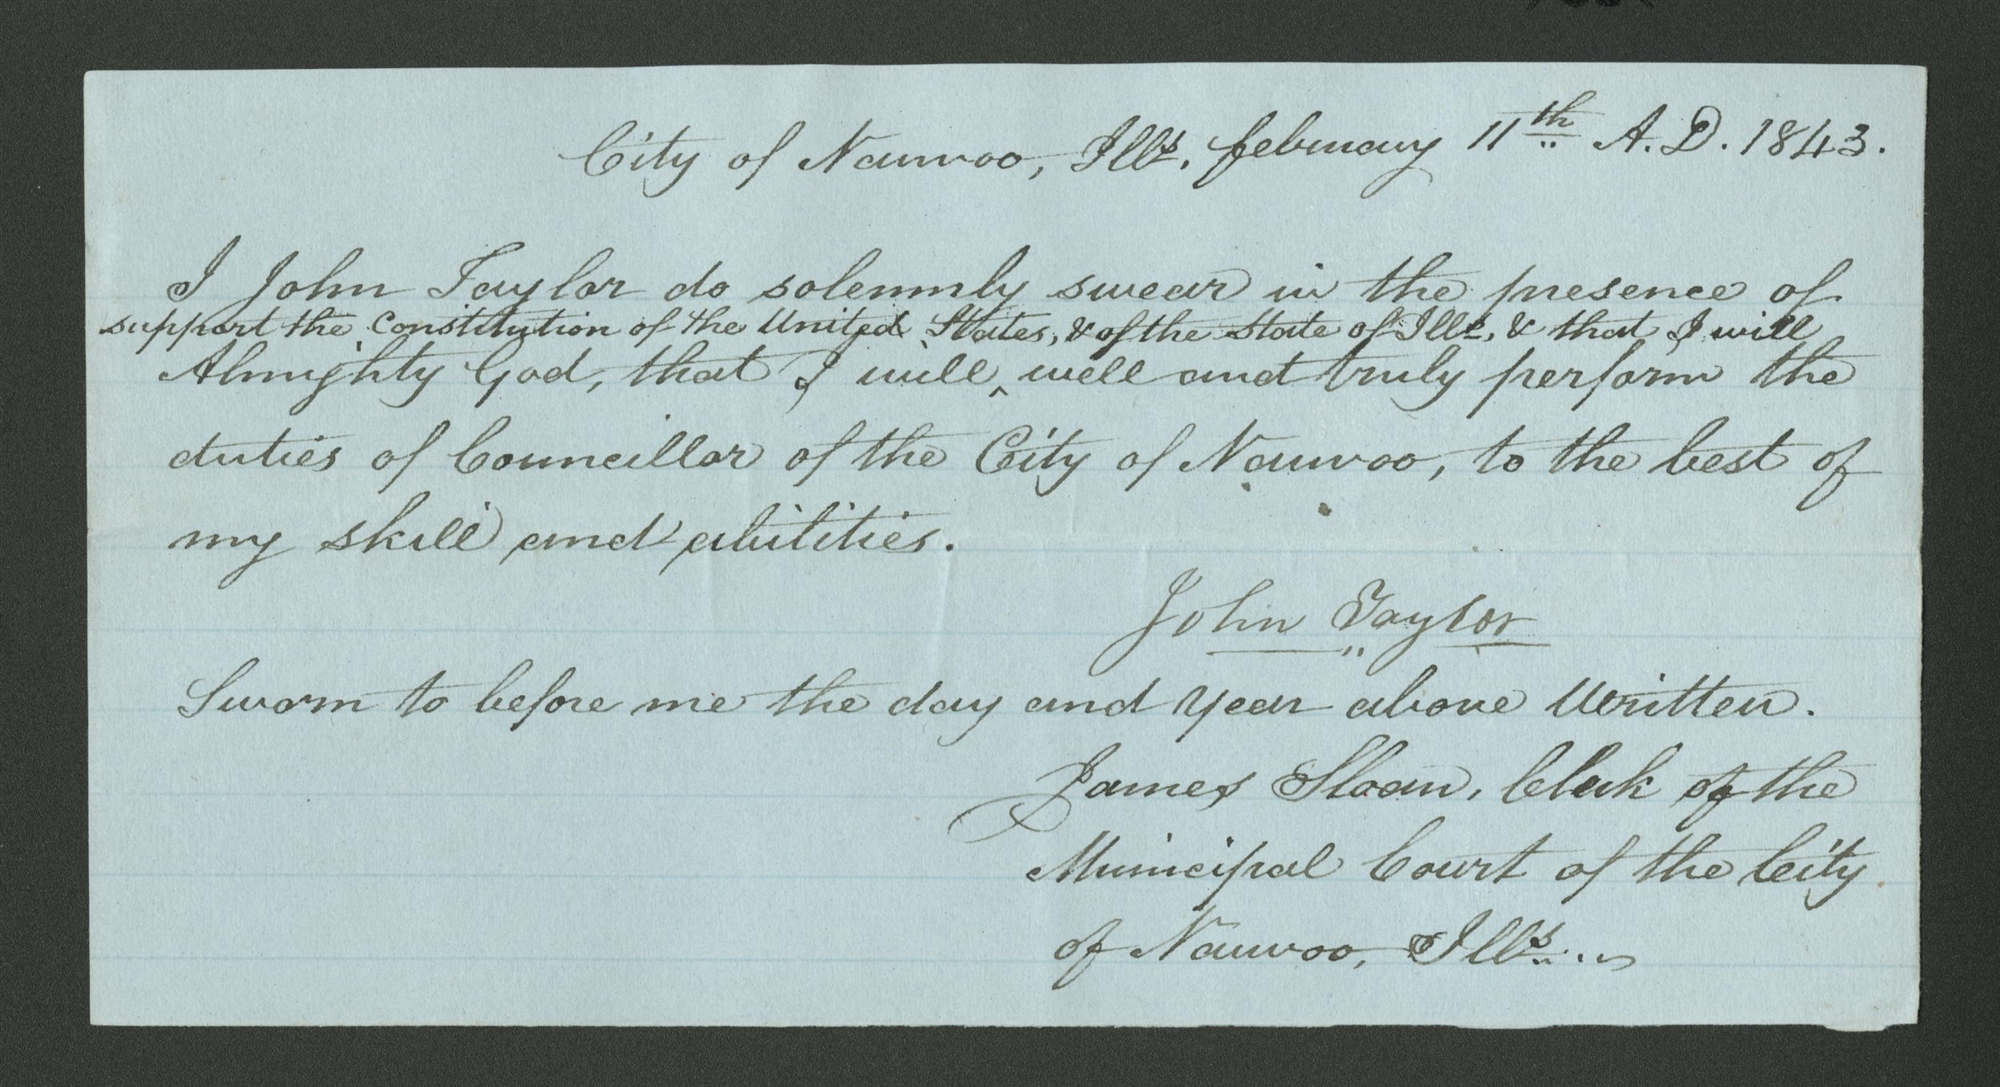 City of Nauvoo, Ills. february 11th A.D. 1843.
I John Taylor do solemnly swear in the presence of
support the constitution of the United States, & of the State of Ills, & that I will
Almighty God, that I will ^ well and truly perform the
duties of Councillor of the City of Nauvoo, to the best of
my skill and abilities.
John Taylor
Sworn to before me the day and year above Written.
James Sloan, Clerk of the
Municipal Court of the City
of Nauvoo, Ills.